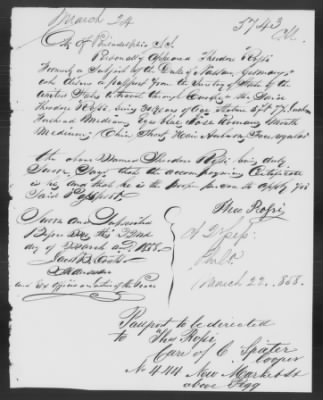 March 24
5743
City of Philadelphia Ss.
Personally Appeared Theodore Rossi
formerly a Subject of the Duke of Nassau, Germany
and desires a Passport from the Secretary of State of the
United States to travel through Europe
Theodore Rossi, being years of age Stature 5 ft 7½ Inches
Forehead Medium, Eyes blue Nose Roman, Mouth
Medium, Chin Short, Hair Auburn, Face regular
The above named Theodore Rossi being duly
Sworn, Says that the accompanying Certificate
is his and that he is the proper person to apply for
Said Passport.
Theo Rossi
Sworn and Subscribed
Before me this 22nd
day of March AD 1868.
Alderman
and Ex Officio Justice of the Peace
March 22. 1868.
Passport to be directed
to Theo Rossi
Care of C. Spater
Cooper
No 444 New Market St
above